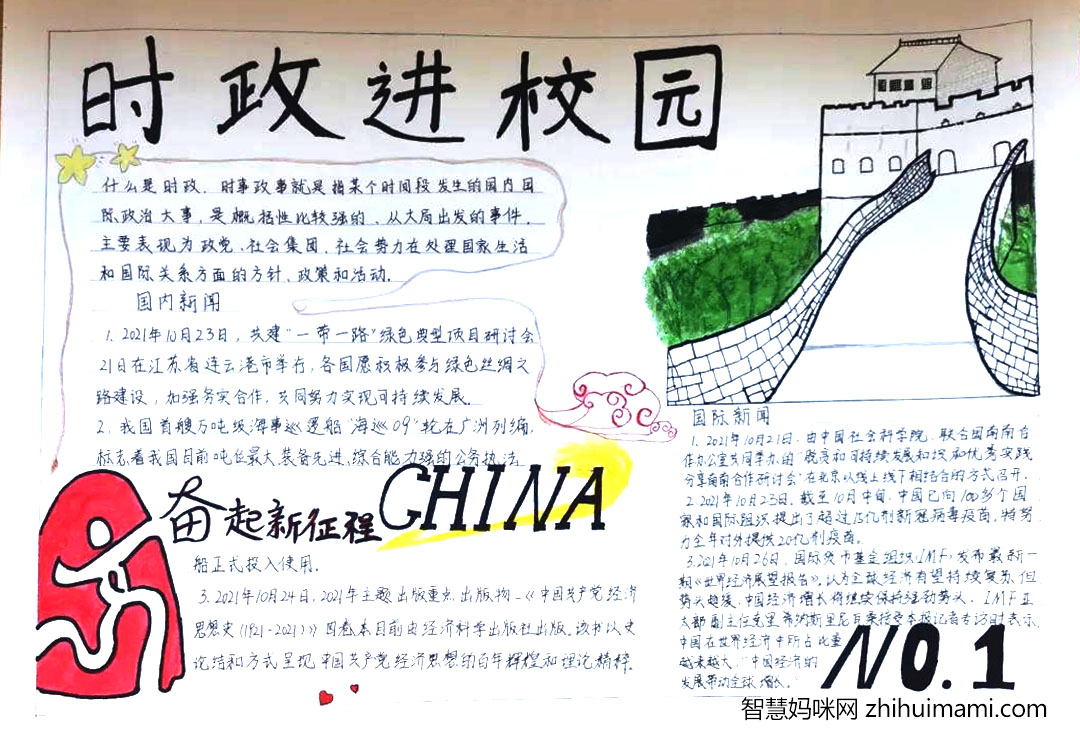 时政进校园
什么是时政，时事政事就是指某个时间段发生的国内国
际政治大事，是概括性比较强的、从大局出发的事件，
主要表现为政党、社会集团、社会势力在处理国家生活
和国际关系方面的方针、政策和活动。
国内新闻
1. 2021年10月23日，共建"一带一路"绿色典型项目研讨会
21日在江苏省连云港市举行，各国愿积极参与绿色丝绸之
路建设，加强务实合作，共同努力实现可持续发展。
2. 我国首艘万吨级海事巡逻船"海巡09"轮在广州列编，
标志着我国目前吨位最大、装备先进、综合能力强的公务执法
奋起新征程 CHINA
船正式投入使用。
3. 2021年10月24日，2021年主题出版重点出版物—《中国共产党经济
思想史（1921-2021）》四卷本目前由经济科学出版社出版。该书以史
论结和方式呈现中国共产党经济思想的百年辉煌和理论精粹。
国际新闻
1. 2021年10月21日，由中国社会科学院、联合国南南合
作办公室共同举办的"脱贫和可持续发展知识和优秀实践
分享南南合作研讨会"在北京以线上线下相结合的方式召开。
2. 2021年10月25日，截至10月中旬，中国已向100多个国
家和国际组织提出了超过15亿剂新冠病毒疫苗，将努
力全年对外提供20亿剂疫苗。
3. 2021年10月26日，国际货币基金组织（IMF）发布最新一
期《世界经济展望报告》，认为全球经济有望持续复苏，但
势头趋缓，中国经济增长将继续保持强劲势头。IMF亚
太部副主任
中国在世界经济中所占比重
越来越大，"中国经济的
发展带动全球增长。"
NO.1
智慧妈咪网 zhihuimami.com